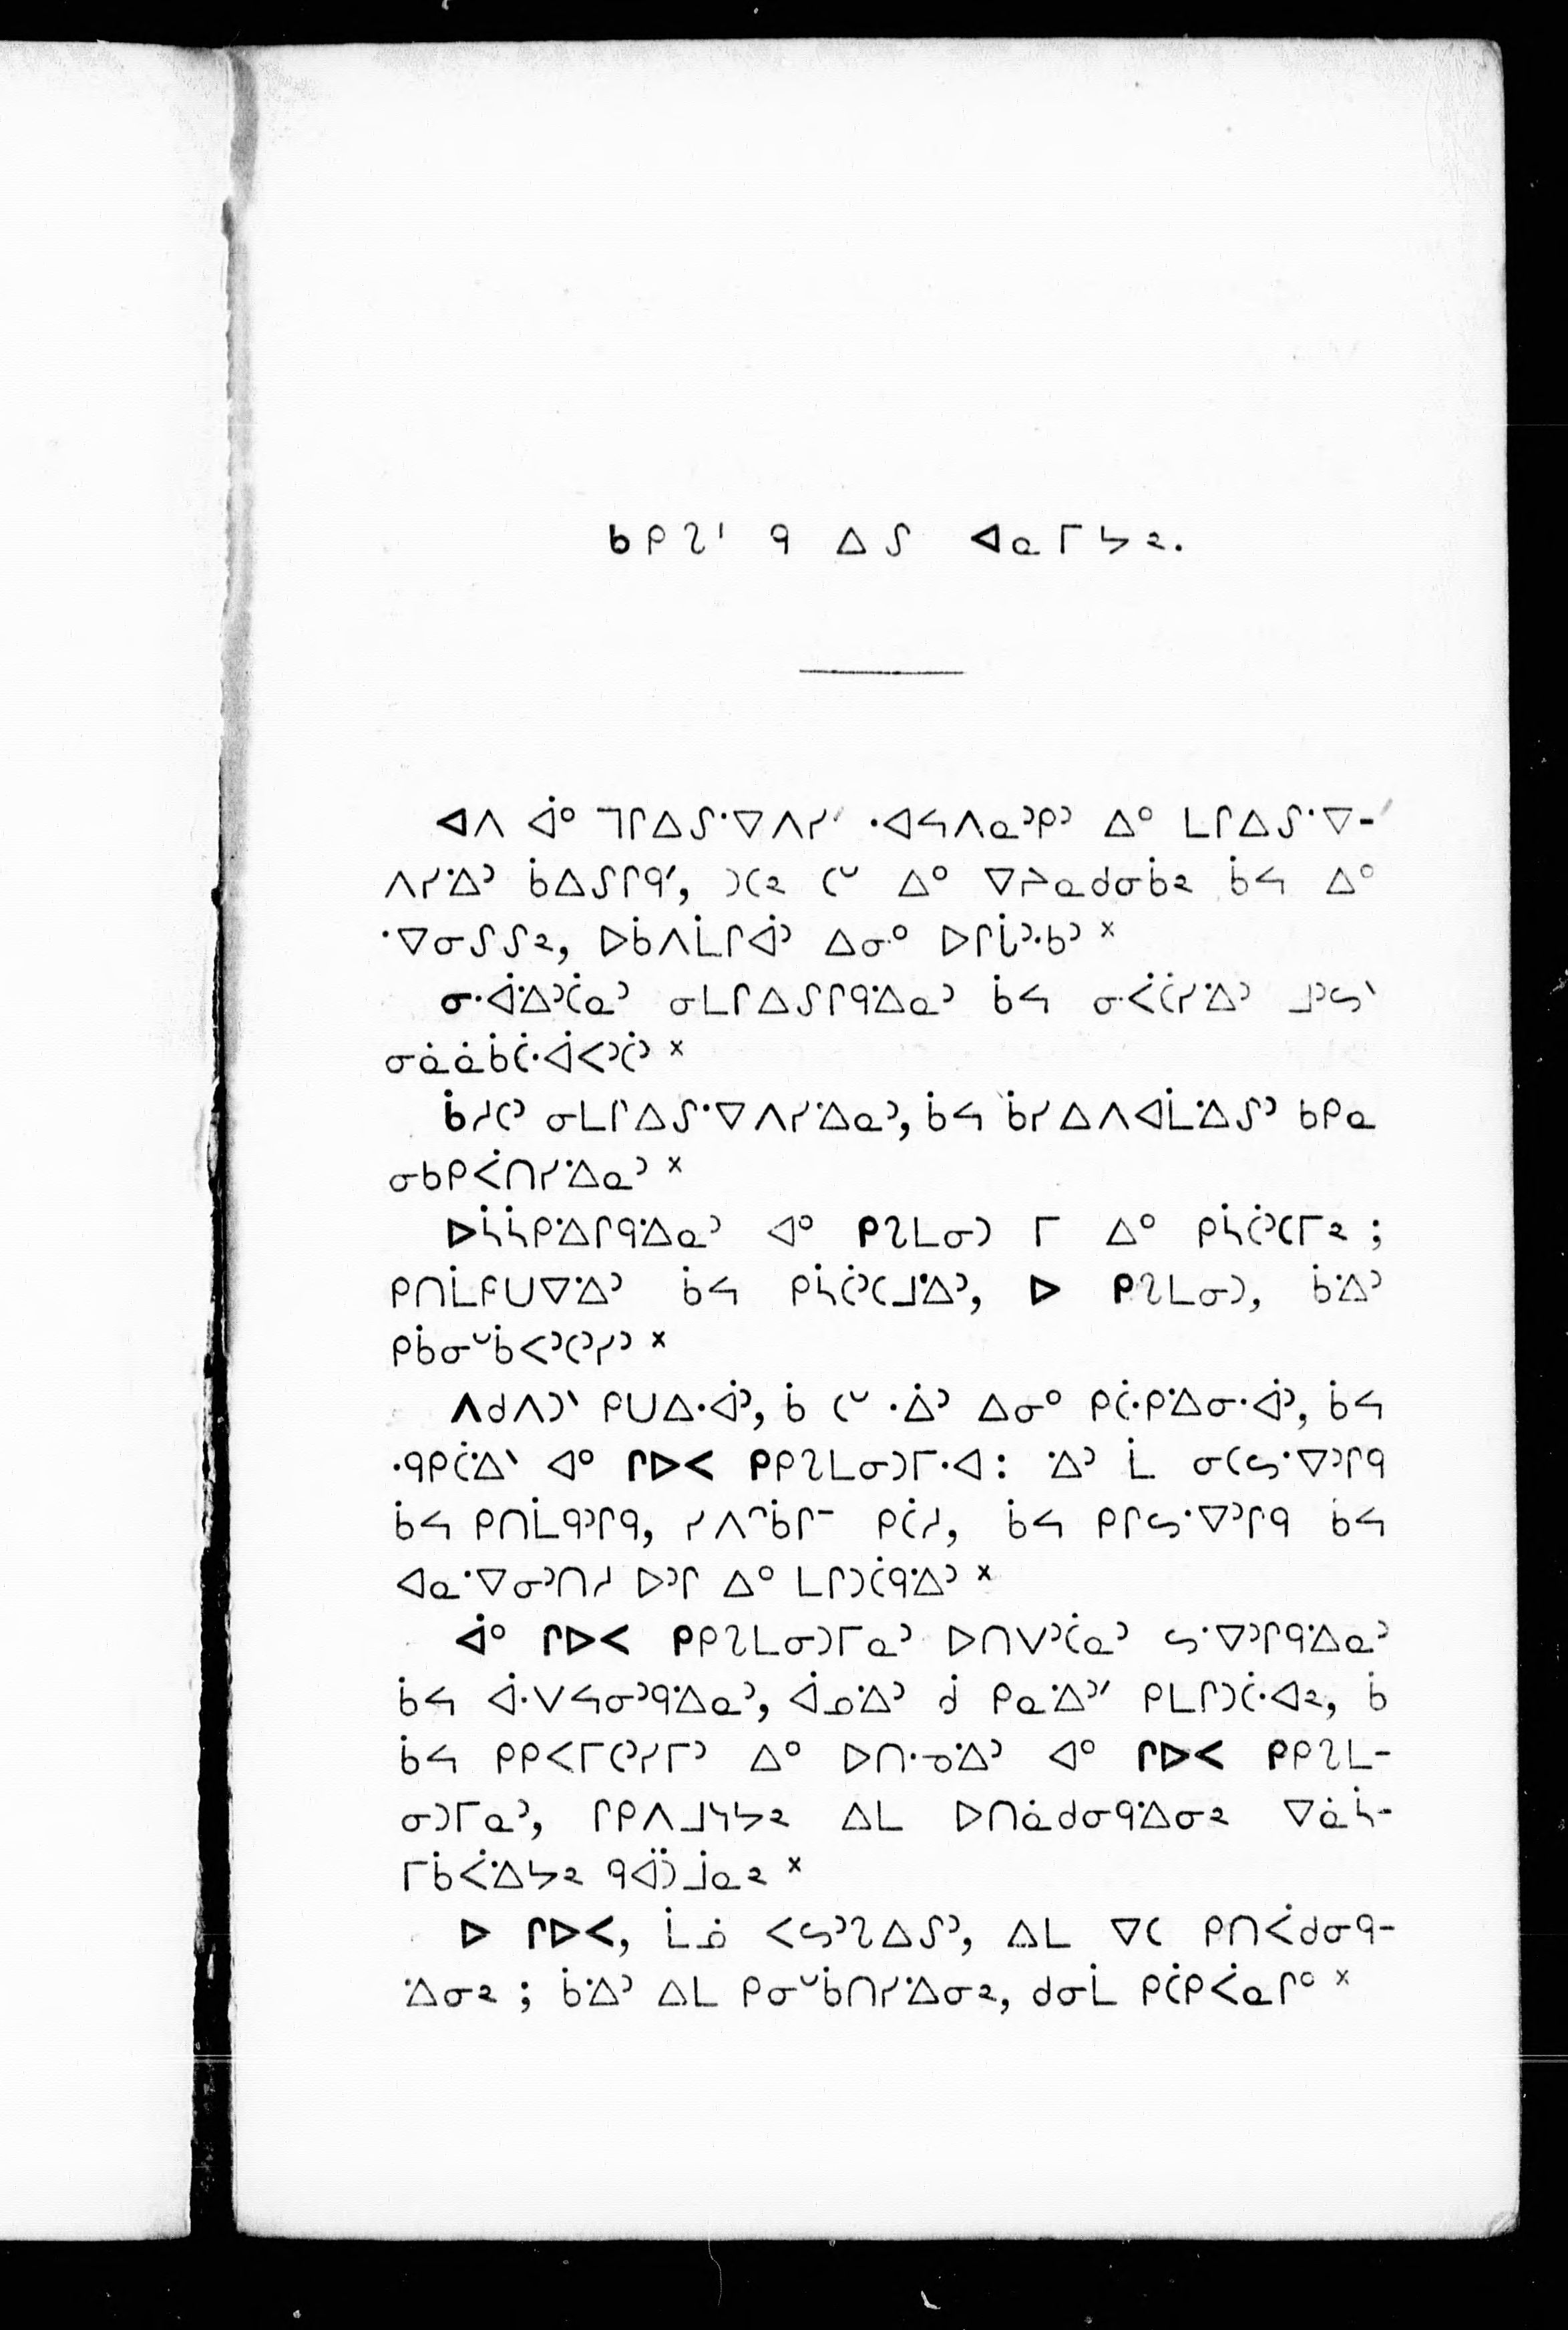 ᑲᑭᔨᑊ ᑫ ᐃᔑ ᐊᓇᒥᔭᕒ.
ᐊᐱ ᐋᐤ ᒣᒋᐃᔑᐧᐁᐱᓯᐟ ᐧᐊᓴᐱᓇᐣᑭᐣ ᐃᐤ ᒪᒋᐃᔑᐧᐁ-
ᐱᓯᐧᐃᐣ ᑳᐃᔑᒋᑫᐟ, ᑐᑕᕒ ᑕᐨ ᐃᐤ ᐁᔨᓇᑯᓂᑳᕒ ᑳᓴ ᐃᐤ
ᐧᐁᓂᔑᔑᕒ, ᐅᑳᐱᒫᒋᐋᐣ ᐃᓂᐤ ᐅᒋᒑᐣᐧᑲᐣ ᕽ
ᓂᐧᐋᐧᐃᐣᑖᓇᐣ ᓂᒪᒋᐃᔑᒋᑫᐧᐃᓇᐣ ᑳᓴ ᓂᐹᑖᓯᐧᐃᐣ ᒧᐣᔕᐠ
ᓂᓈᓈᑳᑖᐧᐋᐸᐣᑖᐣ ᕽ
ᑳᓱᑕᐣ ᓂᒪᒋᐃᔑᐧᐁᐱᓯᐧᐃᓇᐣ, ᑳᓴ ᑳᓯᐃᐱᐊᒫᐧᐃᔑᐣ ᑲᑭᓇ
ᓂᑲᑭᐹᑎᓯᐧᐃᓇᐣ ᕽ
ᐅᓵᓵᑭᐧᐃᒋᑫᐧᐃᓇᐣ ᐊᐤ ᑭᔨᒪᓂᑐ ᒥ ᐃᐤ ᑭᓵᑖᐣᑕᒥᕒ ;
ᑭᑎᒫᑭᑌᐁᐧᐃᐣ ᑳᓴ ᑭᓵᑖᐣᑕᒧᐧᐃᐣ, ᐅ ᑭᔨᒪᓂᑐ, ᑳᐧᐃᐣ
ᑭᑳᓂᐨᑳᐸᐣᑕᐣᓯᐣ ᕽ
ᐱᑯᐱᑐᐠ ᑭᑌᐃᐧᐋᐣ, ᑳ ᑕᐨ ᐧᐄᐣ ᐃᓂᐤ ᑭᑖᐧᑭᐧᐃᓂᐧᐋᐣ, ᑳᓴ
ᐧᑫᑭᑖᐧᐃᐠ ᐊᐤ ᒋᐅᐸ ᑭᑭᔨᒪᓂᑐᒥᐧᐊ: ᐧᐃᐣ ᒫ ᓂᑕᔕᐧᐁᐣᒋᑫ
ᑳᓴ ᑭᑎᒫᑫᐣᒋᑫ, ᓯᐱᐢᑳᒋᐨ ᑭᑖᓱ, ᑳᓴ ᑭᒋᔕᐧᐁᐣᒋᑫ ᑳᓴ
ᐊᓇᐧᐁᓂᐣᑎᓱ ᐅᐣᒋ ᐃᐤ ᒪᒋᑐᑖᑫᐧᐃᐣ ᕽ
ᐋᐤ ᒋᐅᐸ ᑭᑭᔨᒪᓂᑐᒥᓇᐣ ᐅᑎᐯᐣᑖᓇᐣ ᔕᐧᐁᐣᒋᑫᐧᐃᓇᐣ
ᑳᓴ ᐋᐧᐯᓴᓂᐣᑫᐧᐃᓇᐣ, ᐋᓅᐧᐃᐣ ᑰ ᑭᓇᐧᐃᐣᐟ ᑭᒪᒋᑐᑖᐧᐊᕒ, ᑳ
ᑳᓴ ᑭᑭᐸᒥᑕᐣᓯᒥᐣ ᐃᐤ ᐅᑎᐧᓀᐧᐃᐣ ᐊᐤ ᒋᐅᐸ ᑭᑭᔨᒪ-
ᓂᑐᒥᓇᐣ, ᒋᑭᐱᒧᓭᔭᕒ ᐃᒪ ᐅᑎᓈᑯᓂᑫᐧᐃᓂᕒ ᐁᓈᓵ-
ᒥᑳᐹᐧᐃᔭᕒ ᑫᐋᑑᒨᓇᕒ ᕽ
ᐅ ᒋᐅᐸ, ᒫᓅ ᐸᔕᐣᔨᐃᔑᐣ, ᐃᒪ ᐁᑕ ᑭᑎᐹᑯᓂᑫ-
ᐧᐃᓂᕒ ; ᑳᐧᐃᐣ ᐃᒪ ᑭᓂᐨᑳᑎᓯᐧᐃᓂᕒ, ᑯᓂᒫ ᑭᑖᑭᐹᓇᒋᐤ ᕽ